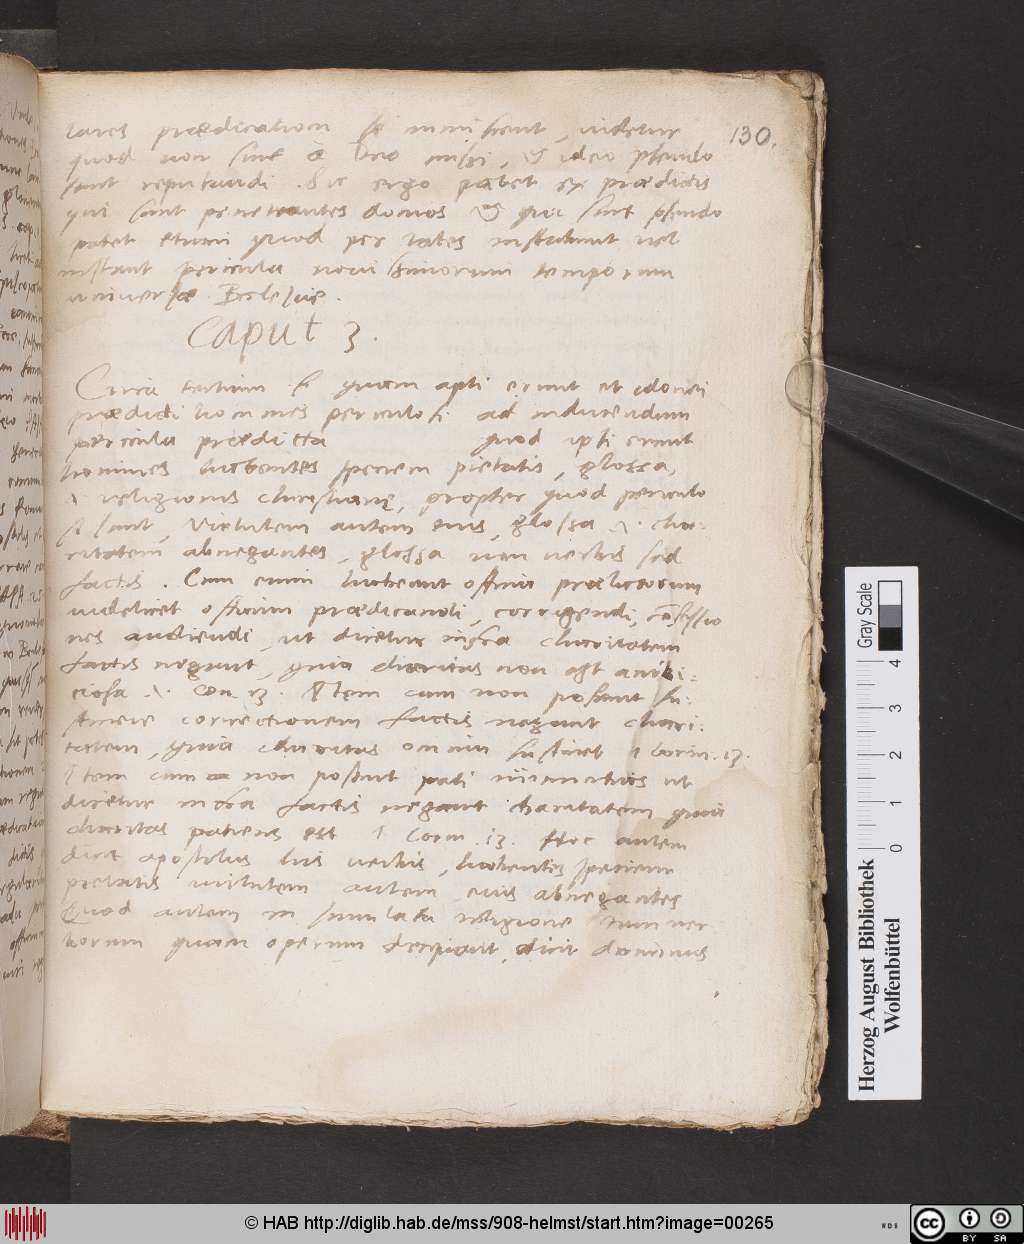 130.
tales prædicationi se inmiscent, videtur
quod non sint à Deo missi, & ideo pseudo
sunt reputandi. Sic ergo patet ex prædictis
qui sunt penetrantes domos & qui sint pseudo
patet etiam quod per tales instabunt vel
instant pericula novissimorum temporum
universæ Ecclesiæ.
Caput 3.
Circa tertium s. quam apti erunt et idonei
prædicti homines periculosi ad inducendum
pericula prædicta quod ipsi erunt
homines habentes speciem pietatis, glossa,
.i. religionis christianę, propter quod periculo
si sunt, Virtutem autem eius, glossa .i. cha:
ritatem abnegantes, glossa non verbis sed
factis. Cum enim habeant officia prælatorum
videlicet officium prædicandi, corrigendi, confessio
nes audiendi, ut dicetur infra charitatem
factis negant, quia charitas non est ambi:
ciosa .1. Cor. 13. Item cum non possunt su:
stinere correctionem factis negant chari:
tatem, quia charitas omnia sustinet 1 Corin. 13.
Item cum non possunt pati inimicitias ut
dicetur infra factis negant charitatem quia
charitas patiens est 1. Corin .13. Hoc autem
dicit apostolus his verbis, habentes speciem
pietatis virtutem autem eius abnegantes
Quod autem in simulata religione tum ver
borum quam operum decipiant, dicit dominus
Gray Scale
0 1 2 3 4
Herzog August Bibliothek
Wolfenbüttel
© HAB http://diglib.hab.de/mss/908-helmst/start.htm?image=00265
WDB
cc BY SA